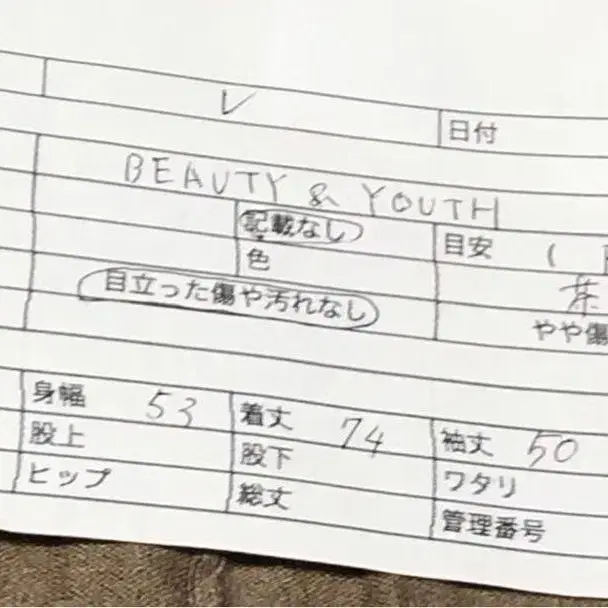 レ 日付
BEAUTY & YOUTH
記載なし 目安 (
色 茶
目立った傷や汚れなし やや傷
身幅 53 着丈 74 袖丈 50
股上 股下 ワタリ
ヒップ 総丈 管理番号